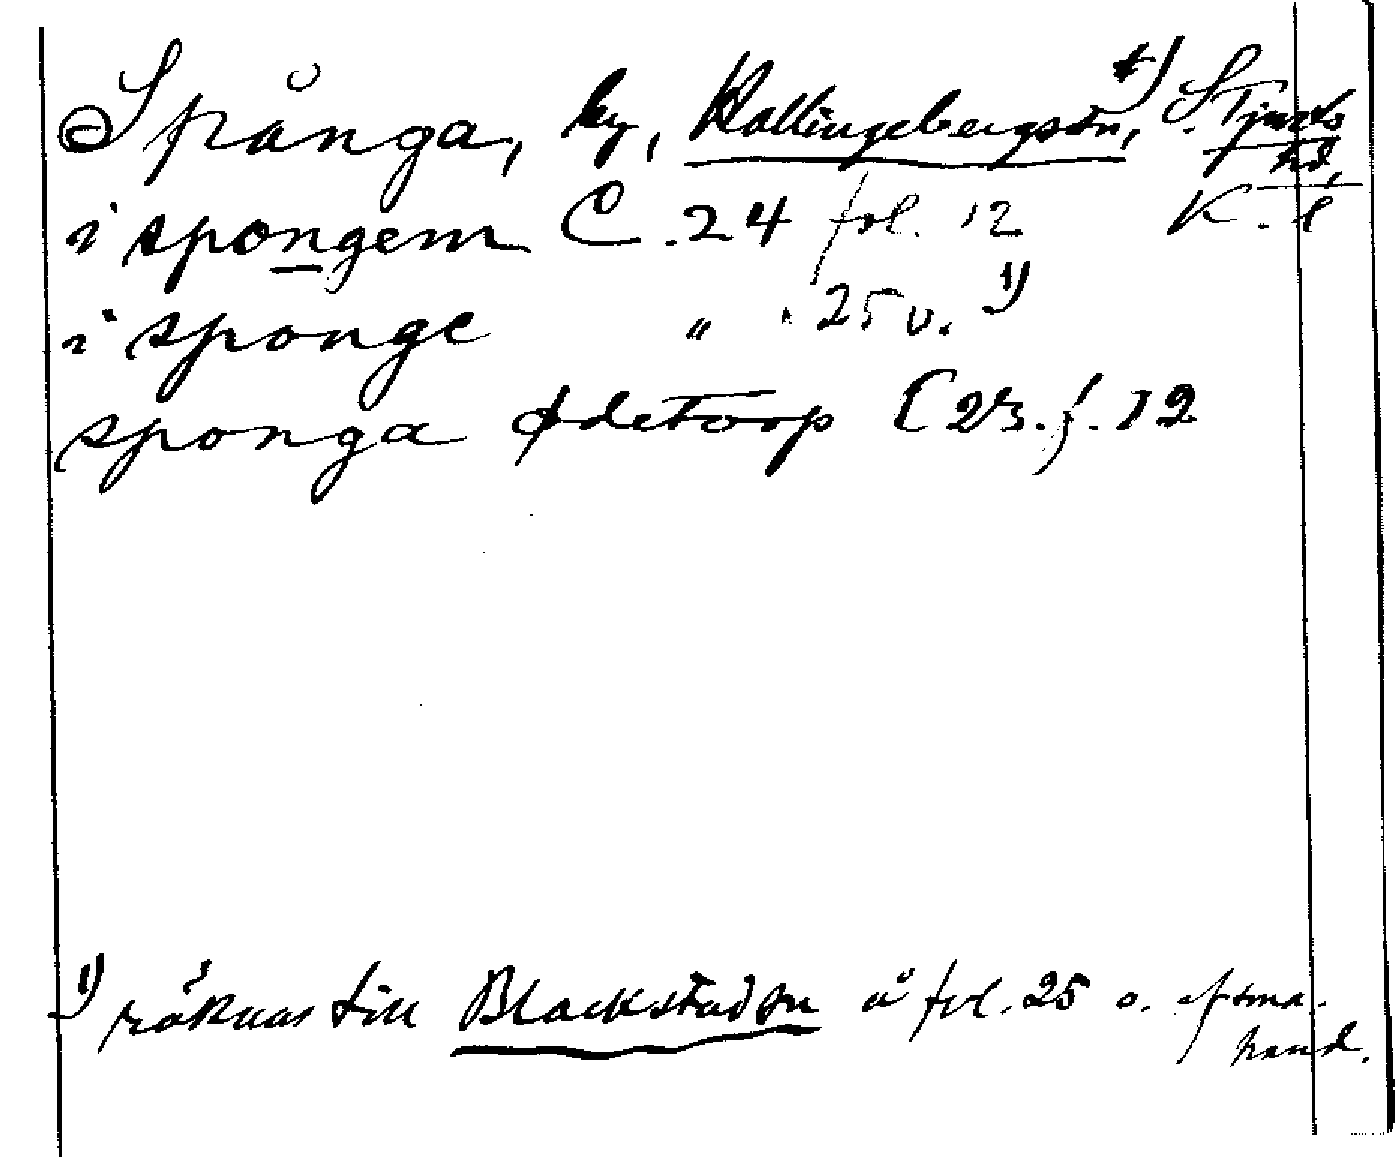 Spånga, by, Hallingebergs sn, 1) S. Tjusts
hd,
i spongem C. 24 fol. 12 K. l
i sponge " " 25 v. 1)
sponga ødetorp C 23. f. 12
1) räknas till Blackstad sn å fol. 25 v. af sma.
hand.